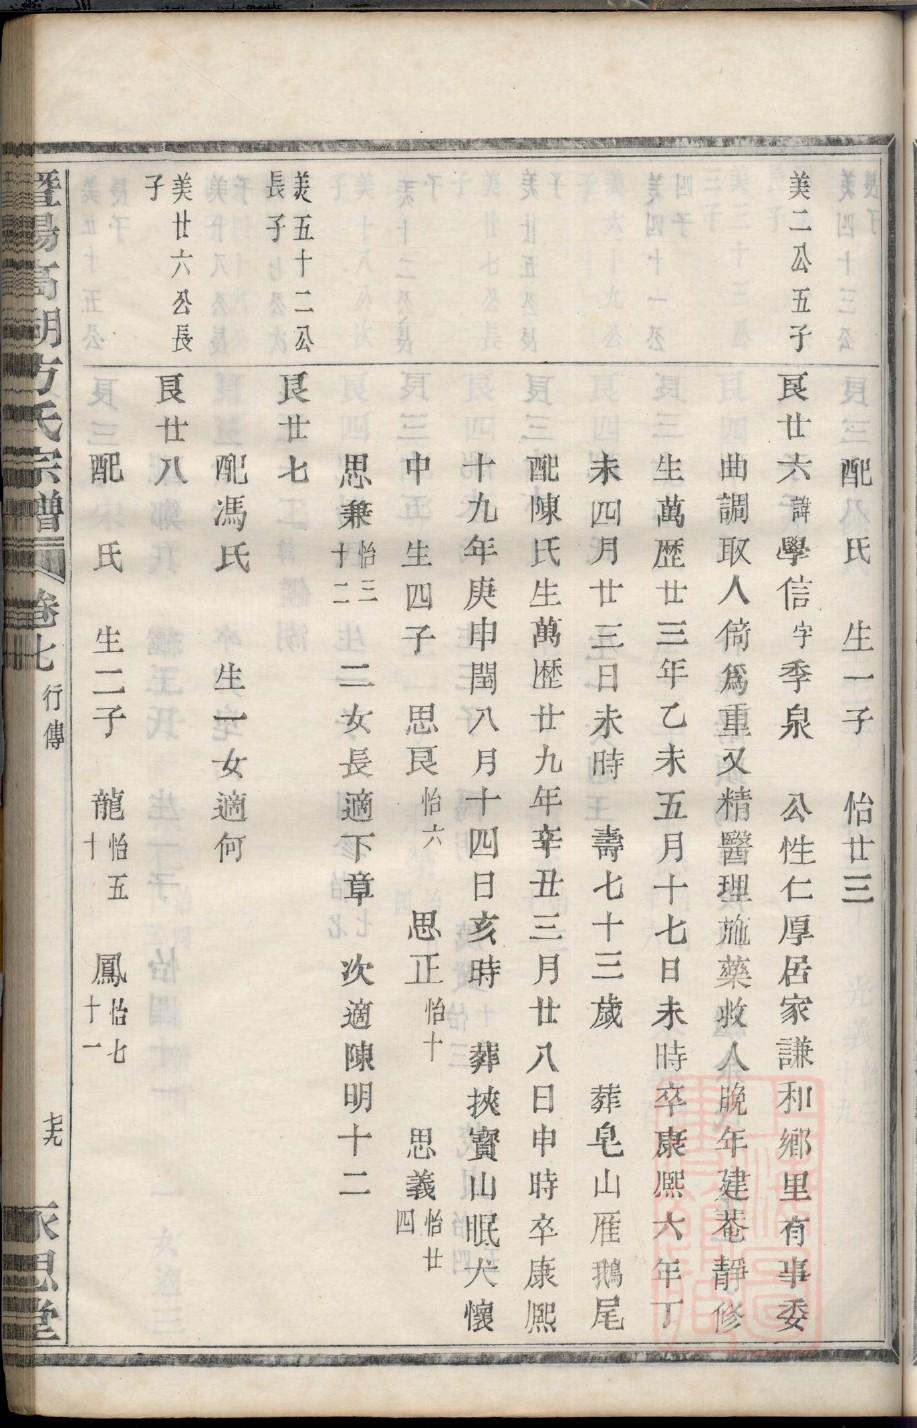 配 氏 生一子 怡廿三
美二公五子
艮廿六諱學信字季泉 公性仁厚居家謙和鄉里有事委
曲調取人倚爲重又精醫理施藥救人晚年建菴靜修
生萬歷廿三年乙未五月十七日未時卒康熙六年丁
未四月廿三日未時 壽七十三歲 葬皂山雁鵝尾
配陳氏生萬歷廿九年辛丑三月廿八日申時卒康熙
十九年庚申閏八月十四日亥時 葬挾寳山眠犬懷
中 生四子 思艮怡六 思正怡十 思義怡廿四
思兼怡三十二 二女長適下章 次適陳明十二
美五十二公
長子
艮廿七
配馮氏 生一女適何
美廿六公長
子
艮廿八
配 氏 生二子 龍怡五十 鳳怡七十一
暨陽高湖方氏宗譜 卷七 行傳 七九 永思堂